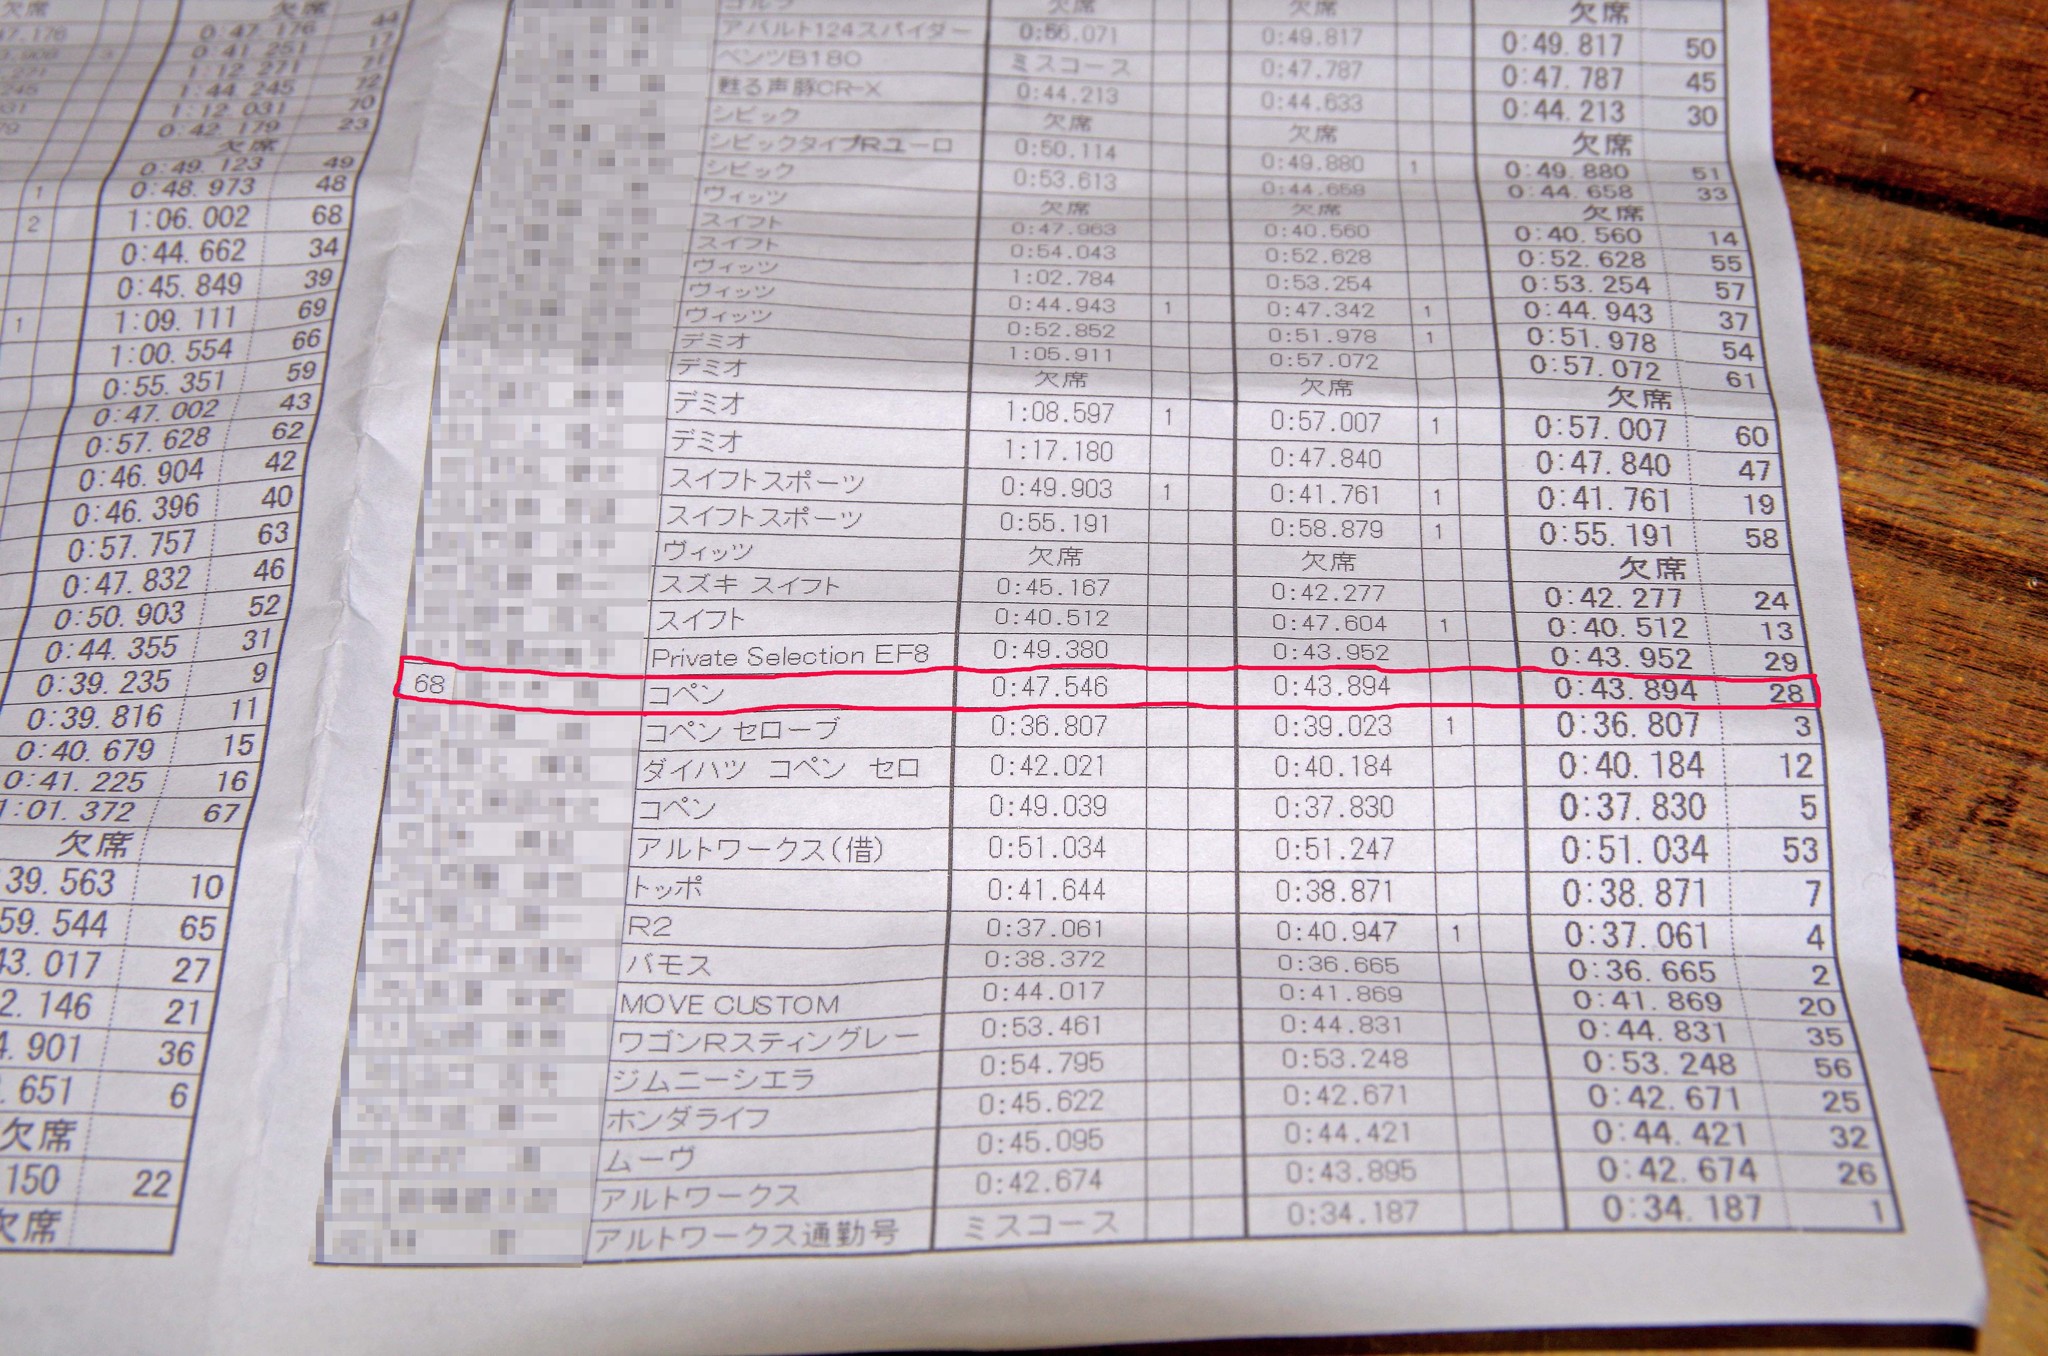 欠席 欠席
0:47.176 44
0:41.251 17
1:12.271 71
1:44.245 72
1:12.031 70
0:42.179 23
欠席
0:49.123 49
1 0:48.973 48
2 1:06.002 68
0:44.662 34
0:45.849 39
1 1:09.111 69
1:00.554 66
0:55.351 59
0:47.002 43
0:57.628 62
0:46.904 42
0:46.396 40
0:57.757 63
0:47.832 46
0:50.903 52
0:44.355 31
0:39.235 9
0:39.816 11
0:40.679 15
0:41.225 16
1:01.372 67
欠席
39.563 10
59.544 65
43.017 27
2.146 21
4.901 36
.651 6
欠席
150 22
欠席
ゴルフ 欠席 欠席 欠席
アバルト124スパイダー 0:56.071 0:49.817 0:49.817 50
ベンツB180 ミスコース 0:47.787 0:47.787 45
甦る声豚CR-X 0:44.213 0:44.633 0:44.213 30
シビック 欠席 欠席 欠席
シビックタイプRユーロ 0:50.114 0:49.880 1 0:49.880 51
シビック 0:53.613 0:44.658 0:44.658 33
ヴィッツ 欠席 欠席 欠席
スイフト 0:47.963 0:40.560 0:40.560 14
スイフト 0:54.043 0:52.628 0:52.628 55
ヴィッツ 1:02.784 0:53.254 0:53.254 57
ヴィッツ 0:44.943 1 0:47.342 1 0:44.943 37
ヴィッツ 0:52.852 0:51.978 1 0:51.978 54
デミオ 1:05.911 0:57.072 0:57.072 61
デミオ 欠席 欠席 欠席
デミオ 1:08.597 1 0:57.007 1 0:57.007 60
デミオ 1:17.180 0:47.840 0:47.840 47
スイフトスポーツ 0:49.903 1 0:41.761 1 0:41.761 19
スイフトスポーツ 0:55.191 0:58.879 1 0:55.191 58
ヴィッツ 欠席 欠席 欠席
スズキ スイフト 0:45.167 0:42.277 0:42.277 24
スイフト 0:40.512 0:47.604 1 0:40.512 13
Private Selection EF8 0:49.380 0:43.952 0:43.952 29
68 コペン 0:47.546 0:43.894 0:43.894 28
コペン セローブ 0:36.807 0:39.023 1 0:36.807 3
ダイハツ コペン セロ 0:42.021 0:40.184 0:40.184 12
コペン 0:49.039 0:37.830 0:37.830 5
アルトワークス(借) 0:51.034 0:51.247 0:51.034 53
トッポ 0:41.644 0:38.871 0:38.871 7
R2 0:37.061 0:40.947 1 0:37.061 4
バモス 0:38.372 0:36.665 0:36.665 2
MOVE CUSTOM 0:44.017 0:41.869 0:41.869 20
ワゴンRスティングレー 0:53.461 0:44.831 0:44.831 35
ジムニーシエラ 0:54.795 0:53.248 0:53.248 56
ホンダライフ 0:45.622 0:42.671 0:42.671 25
ムーヴ 0:45.095 0:44.421 0:44.421 32
アルトワークス 0:42.674 0:43.895 0:42.674 26
アルトワークス通勤号 ミスコース 0:34.187 0:34.187 1